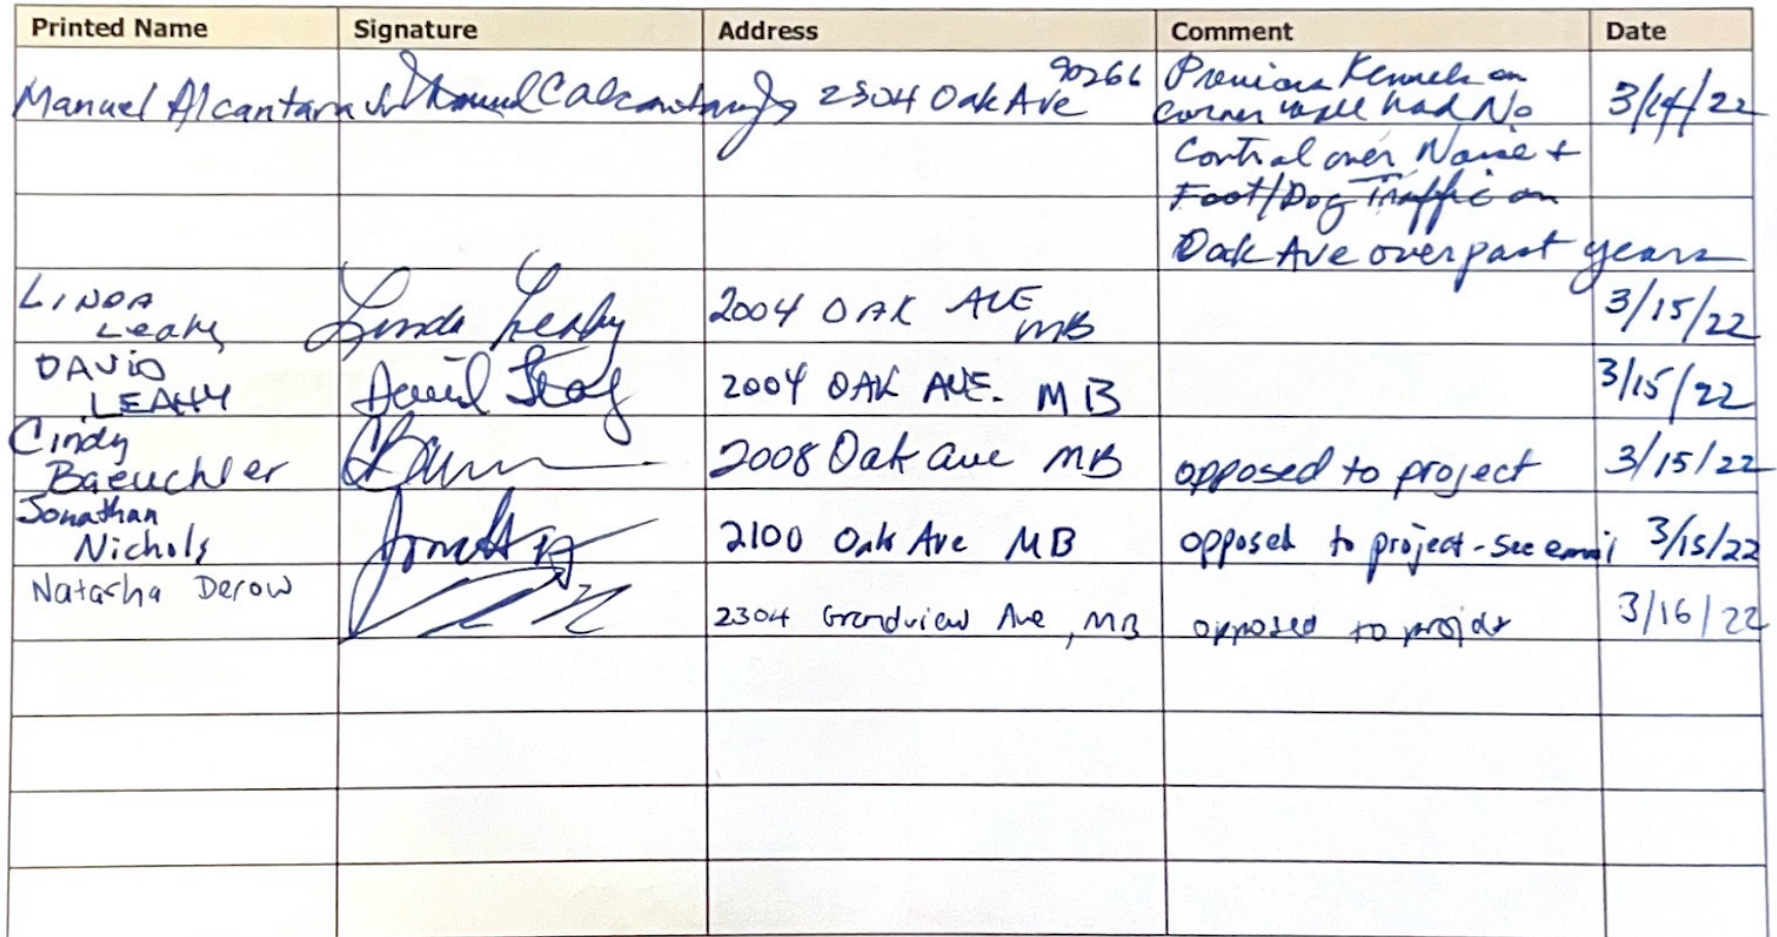 Printed Name Signature Address Comment Date
Manuel Alcantara Jr Manuel C Alcantara Jr 2304 Oak Ave 90266 Previous Kennels on 3/14/22
corner had No
Control over Noise +
Foot/Dog Traffic on
Oak Ave over past years
LINDA Leahy Linda Leahy 2004 OAK AVE MB 3/15/22
DAVID LEAHY David Leahy 2004 OAK AVE. MB 3/15/22
Cindy Baeuchler 2008 Oak ave MB opposed to project 3/15/22
Jonathan Nichols 2100 Oak Ave MB opposed to project - see email 3/15/22
Natasha Derow 2304 Grandview Ave, MB opposed to project 3/16/22